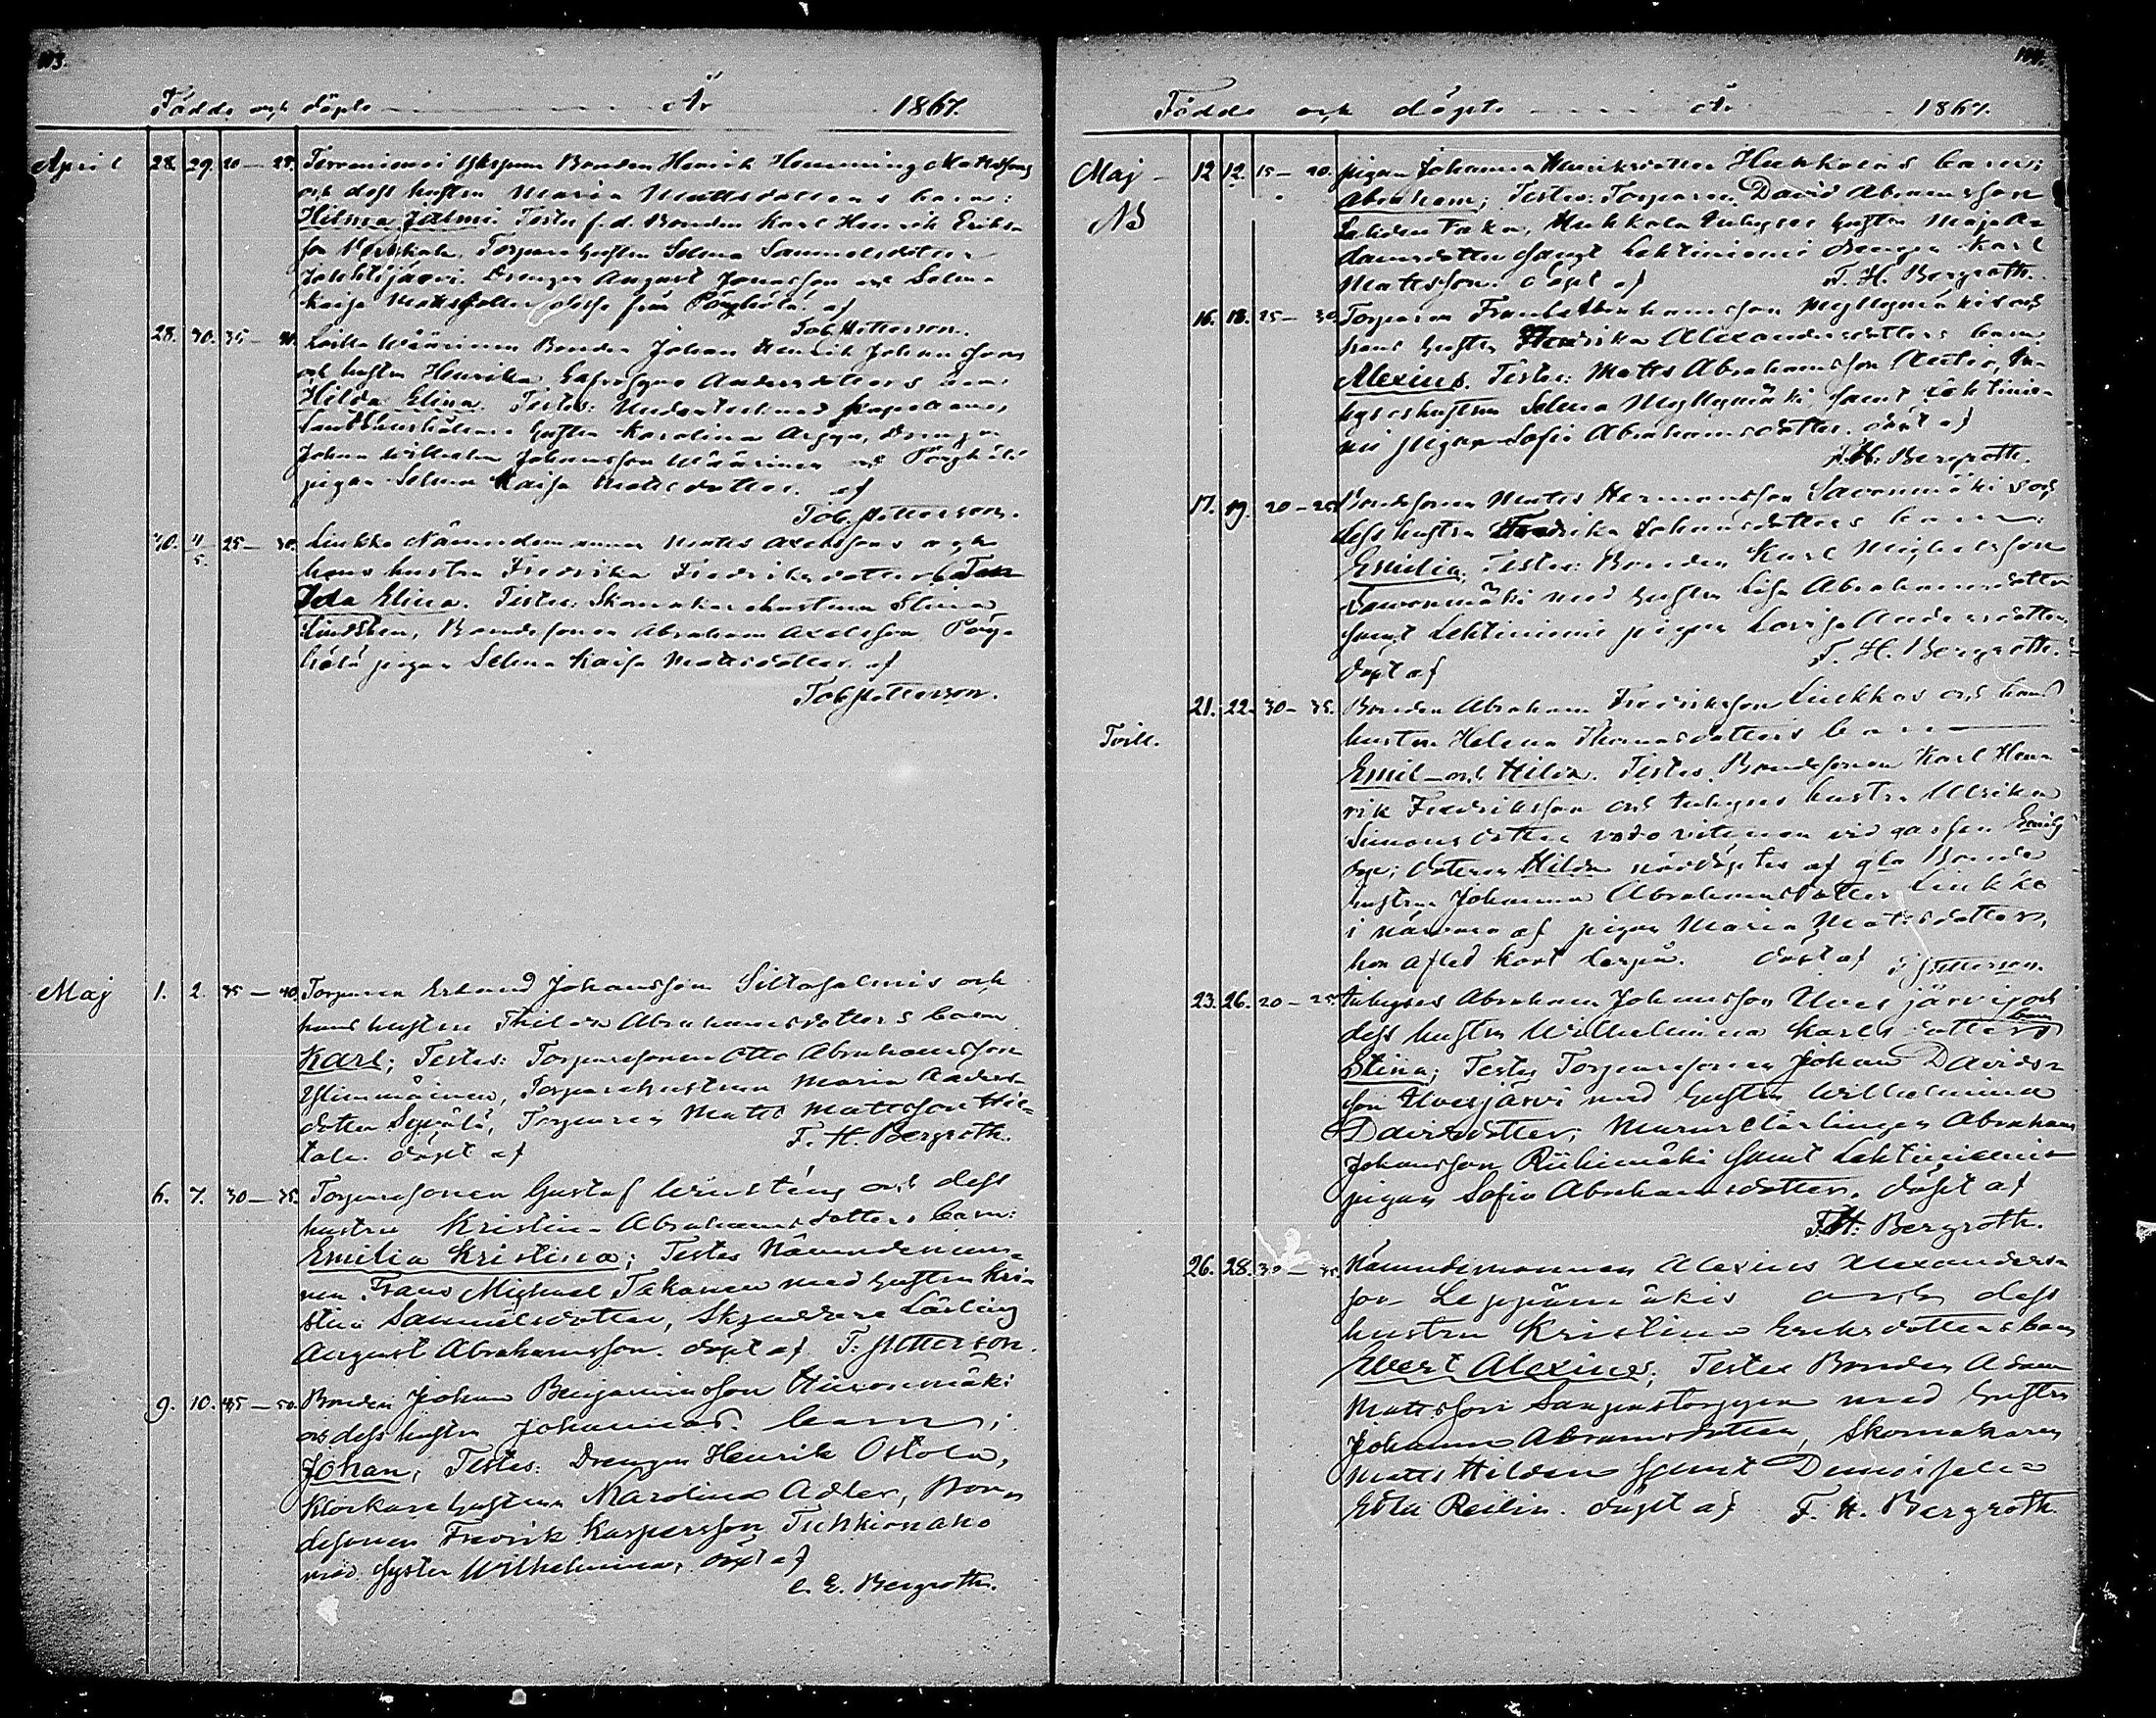 Födde och döpte År 1867.
April 28. 29. 20 — 25. Bonden Henrik Henning Mattssons
och dess hustru Maria Mattsdotters barn:
Hilma Testes f.d. Bonden Karl Henrik Eriks-
son Torpare hustru Selma Samuelsdotter
Drengen August Jonasson och Selma
Kaisa Mattsdotter från Pörghölä. af
Tob. Petterson.
28. 30. 35 — 40. Wäärinen Bonden Johan Henrik Johanssons
och hustru Henrika Andersdotters barn:
Hilda Elina. Testes:
hustru Karolina Drengen
Johan Wilhelm Johansson Wäärinen och
pigan Selma Kaisa Mattsdotter. af
Tob. Petterson.
30. 4/5. 25 — 30. Liukko Nämndemannen Matts Axelssons och
hans hustru Fredrika Fredriksdotters
Ida Elina. Testes: Skomakarehustrun Stina
Lindsten, Bondesonen Abraham Axelsson
pigan Selma Kaisa Mattsdotter. af
Tob. Petterson.
Maj 1. 2. 35 — 40. Torparen Erland Johansson Siltasalmis och
hans hustru Thilda Abrahamsdotters barn
Karl; Testes: Torparesonen Otto Abrahamsson
Torparehustrun Maria Anders-
dotter Seppälä, Torparen Matts Mattsson Hie-
tala. döpt af F. H. Bergroth.
6. 7. 30 — 35. Torparesonen Gustaf och dess
hustru Kristina Abrahamsdotters barn:
Emilia Kristina; Testes Nämndeman-
nen Frans Michael Tahanen med hustru Kri-
stina Samuelsdotter, Skräddare Lärling
August Abrahamsson. döpt af T. Petterson.
9. 10. 45 — 50. Bonden Johan Benjaminsson Hiironmäki
och dess hustru Johannas barn:
Johan; Testes: Drengen Henrik Ostola,
Klockare hustrun Karolina Adler, Bon-
desonen Fredrik Kaspersson Tuhkionaho
med syster Wilhelmina, döpt af
C. E. Bergroth.
Födde och döpte År 1867.
Maj 12 12. 15 — 20. pigan Johanna Henriksdotter Huhkalas barn:
NB Abraham; Testes: Torparen David Abramsson
Huhkala Inhyses hustru Maja A-
damsdotter samt Lehtiniemi drengen Karl
Mattsson. döpt af F. H. Bergroth.
16. 18. 25 — 30. Torparen Frans Abrahamsson Myllymäkis och
hans hustru Hendrika Alexandersdotters barn:
Alexius. Testes: Matts Abrahamsson In-
hyseshustrun Selma Myllymäki samt Lehtinie-
mi pigan Sofia Abrahamsdotter. döpt af
F. H. Bergroth.
17. 19. 20 — 25. Bondesonen Matts Hermansson Savonmäkis och
dess hustru Fredrika Johansdotters barn:
Emilia; Testes: Bonden Karl Michelsson
Savonmäki med hustru Lisa Abrahamsdotter
samt Lehtiniemi pigan Lovisa Andersdotter,
döpt af F. H. Bergroth.
21. 22. 30 — 35. Bonden Abraham Fredriksson Liukkos och hans
Tvill. hustru Helena Thomasdotters barn
Emil och Hilda. Testes Bondesonen Karl Hen-
rik Fredriksson och Inhyses hustru Ulrika
Simonsdotter voro vitnen vid gossen Emils
dop; dottren Hilda nöddöptes af gla Bonde
hustrun Johanna Abrahamsdotter Liukko
i närvaro af pigan Maria Mattsdotter,
hon afled kort derpå. döpt af T. Petterson.
23. 26. 20 — 25. Inhyses Abraham Johansson Uvesjärvis och
dess hustru Wilhelmina Karlsdotters barn
Stina; Testes Torparesonen Johan Davids-
son Uvesjärvi med hustru Wilhelmina
Davidsdotter; Murarelärlingen Abraham
Johansson Riihimäki samt Lehtiniemi
pigan Sofia Abrahamsdotter. döpt af
F. H. Bergroth.
26. 28. 30 — 35. Nämndemannen Alexius Alexanders-
son Leppämäkis och dess
hustru Kristina Eriksdotters barn
Evert Alexius; Testes Bonden Adam
Mattsson med hustru
Johanna Abramsdotter, Skomakaren
Matts Hilden samt Demoiselle
Reilin. döpt af F. H. Bergroth.